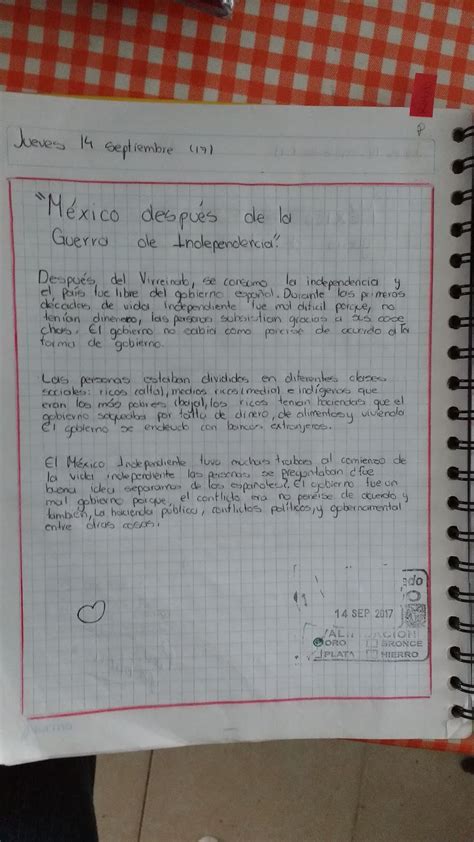 P
Jueves 14 septiembre (17)
"México después de la
Guerra de Independencia".
Después, del Virreinato, se consumo la independencia y
el país fue libre del gobierno español. Durante las primeras
décadas de vida independiente fue mal dificil porque, no
tenían dinenero, las personan subsistian gracias a sus cose
chas. El gobierno no cabia como ponerse de acuerdo a la
forma de gobierno.
Las personas estaban divididas en diferentes clases
sociales: ricos (alta), medios ricos (media) e indígenas que
eran los más pobres (baja), los ricos tenían haciendas que el
gobierno saqueaba por falta de dinero, de alimentos y vivienda
El gobierno se endeudo con bancos extranjeros.
El México Independiente tuvo muchas trabas al comienzo de
la vida independiente las personas se preguntaban ¿fue
buena idea separarnos de los españoles?. El gobierno fue un
mal gobierno porque, el conflicto era no ponerse de acuerdo y
también, La hacienda pública, conflictos políticos, y gobernamental
entre otras cosas.
14 SEP 2017
ORO
BRONCE
PLATA
HIERRO